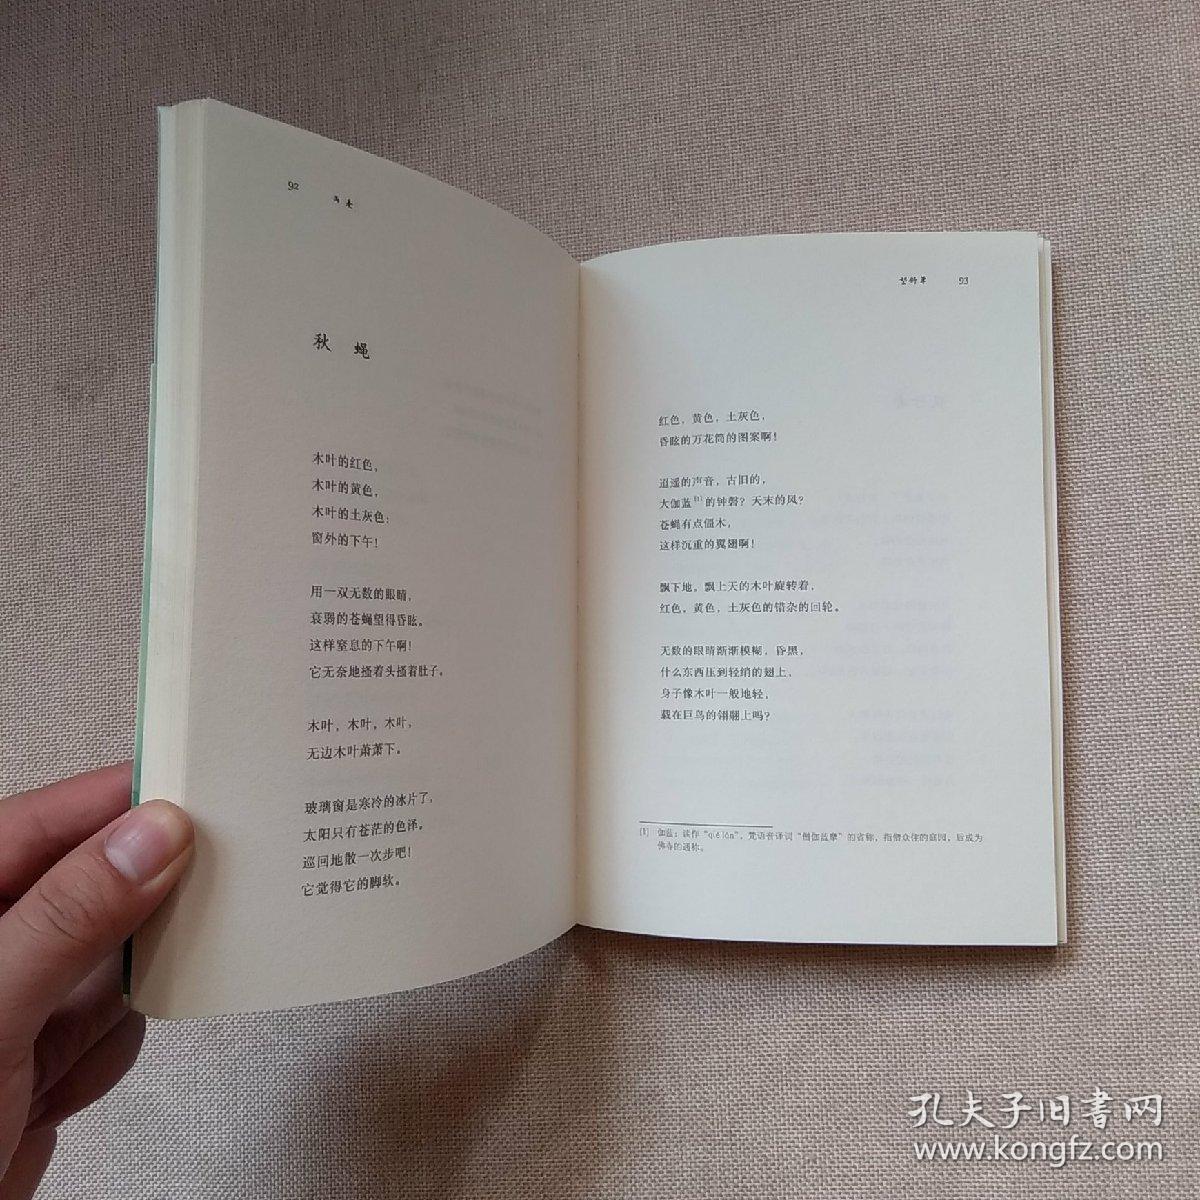 92
秋 蝇
木叶的红色，
木叶的黄色，
木叶的土灰色：
窗外的下午！
用一双无数的眼睛，
衰弱的苍蝇望得昏眩。
这样窒息的下午啊！
它无奈地搔着头搔着肚子。
木叶，木叶，木叶，
无边木叶萧萧下。
玻璃窗是寒冷的冰片了，
太阳只有苍茫的色泽。
巡回地散一次步吧！
它觉得它的脚软。
望舒草 93
红色，黄色，土灰色，
昏眩的万花筒的图案啊！
迢遥的声音，古旧的，
大伽蓝[1]的钟磬？天末的风？
苍蝇有点僵木，
这样沉重的翼翅啊！
飘下地，飘上天的木叶旋转着，
红色，黄色，土灰色的错杂的回轮。
无数的眼睛渐渐模糊，昏黑，
什么东西压到轻绡的翅上，
身子像木叶一般地轻，
载在巨鸟的翎翮上吗？
[1] 伽蓝：读作“qiélán”，梵语音译词“僧伽蓝摩”的省称，指僧众住的庭园，后成为
佛寺的通称。
孔夫子旧书网
www.kongfz.com